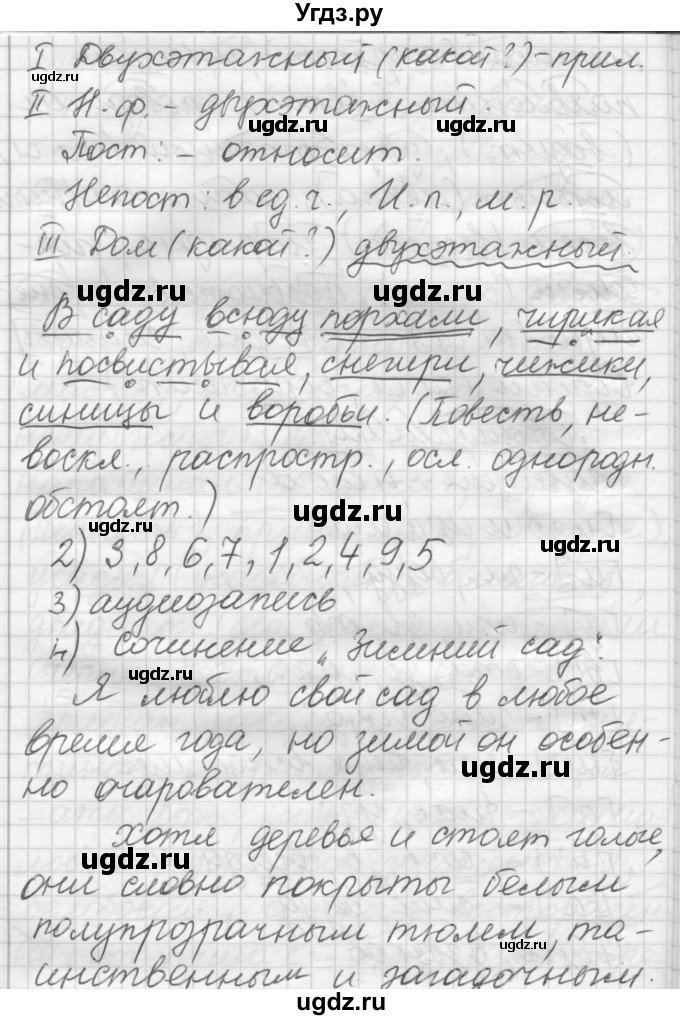 Угдз.ру
I Двухэтажный (какой?) - прил.
ugdz.ru
II Н.ф. - двухэтажный.
ugdz.ru ugdz.ru
Пост: - относит.
Непост: в ед.ч., И.п., м.р.
III Дом (какой?) двухэтажный.
ugdz.ru ugdz.ru
В саду всюду порхали, чирикая
и посвистывая, снегири, чижики,
синицы и воробьи. (Повеств, не-
воскл., распростр., осл. однородн.
обстоят.)
ugdz.ru ugdz.ru
2) 3, 8, 6, 7, 1, 2, 4, 9, 5
ugdz.ru
3) аудиозапись
4) Сочинение „Зимний сад".
ugdz.ru
Я люблю свой сад в любое
время года, но зимой он особен-
ugdz.ru
но очарователен.
Хотя деревья и стоят голые,
ugdz.ru
они словно покрыты белым
полупрозрачным тюлем, та-
ugdz.ru
инственным и загадочным.
ugdz.ru